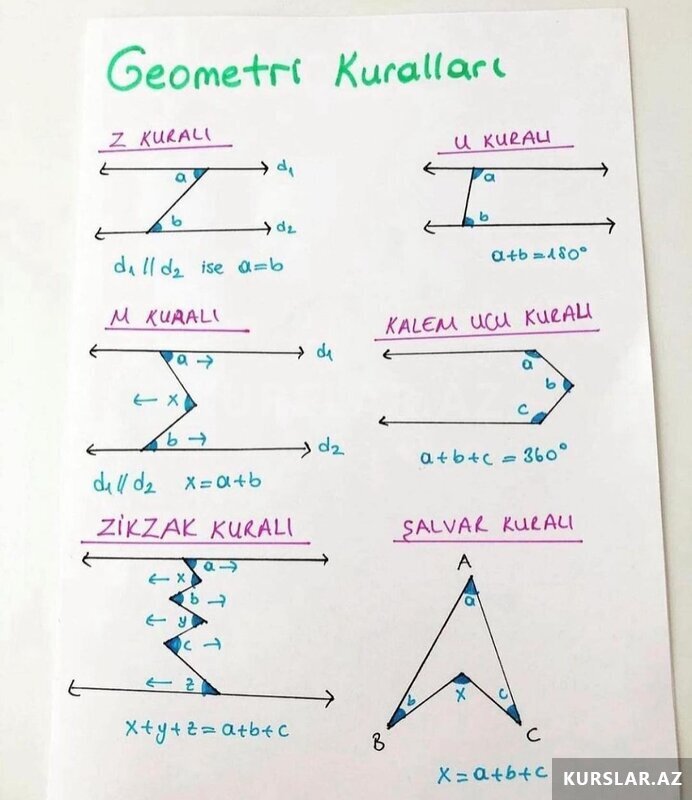 Geometri Kuralları
Z KURALI
a
d1
b
d2
d1 // d2 ise a=b
U KURALI
a
b
a+b=180°
M KURALI
a →
d1
← x
b →
d2
d1 // d2 x=a+b
KALEM UCU KURALI
a
b
c
a+b+c = 360°
ZİKZAK KURALI
a →
← x
b →
← y
c →
← z
x+y+z=a+b+c
ŞALVAR KURALI
A
a
b
x
c
B
C
x=a+b+c
KURSLAR.AZ